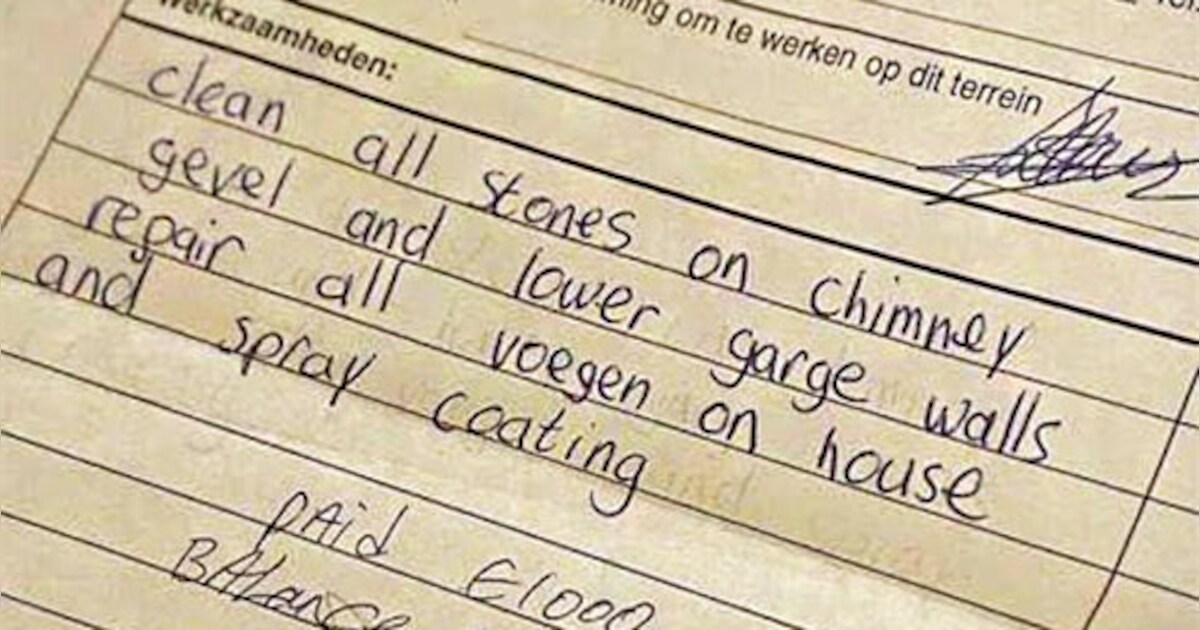 om te werken op dit terrein
Werkzaamheden:
clean all stones on chimney
gevel and lower garge walls
repair all voegen on house
and spray coating
PAid €1000
BALance